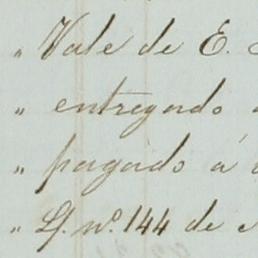 " Vale de E.
" entregado
" pagado á
" Lf. nº. 144 de